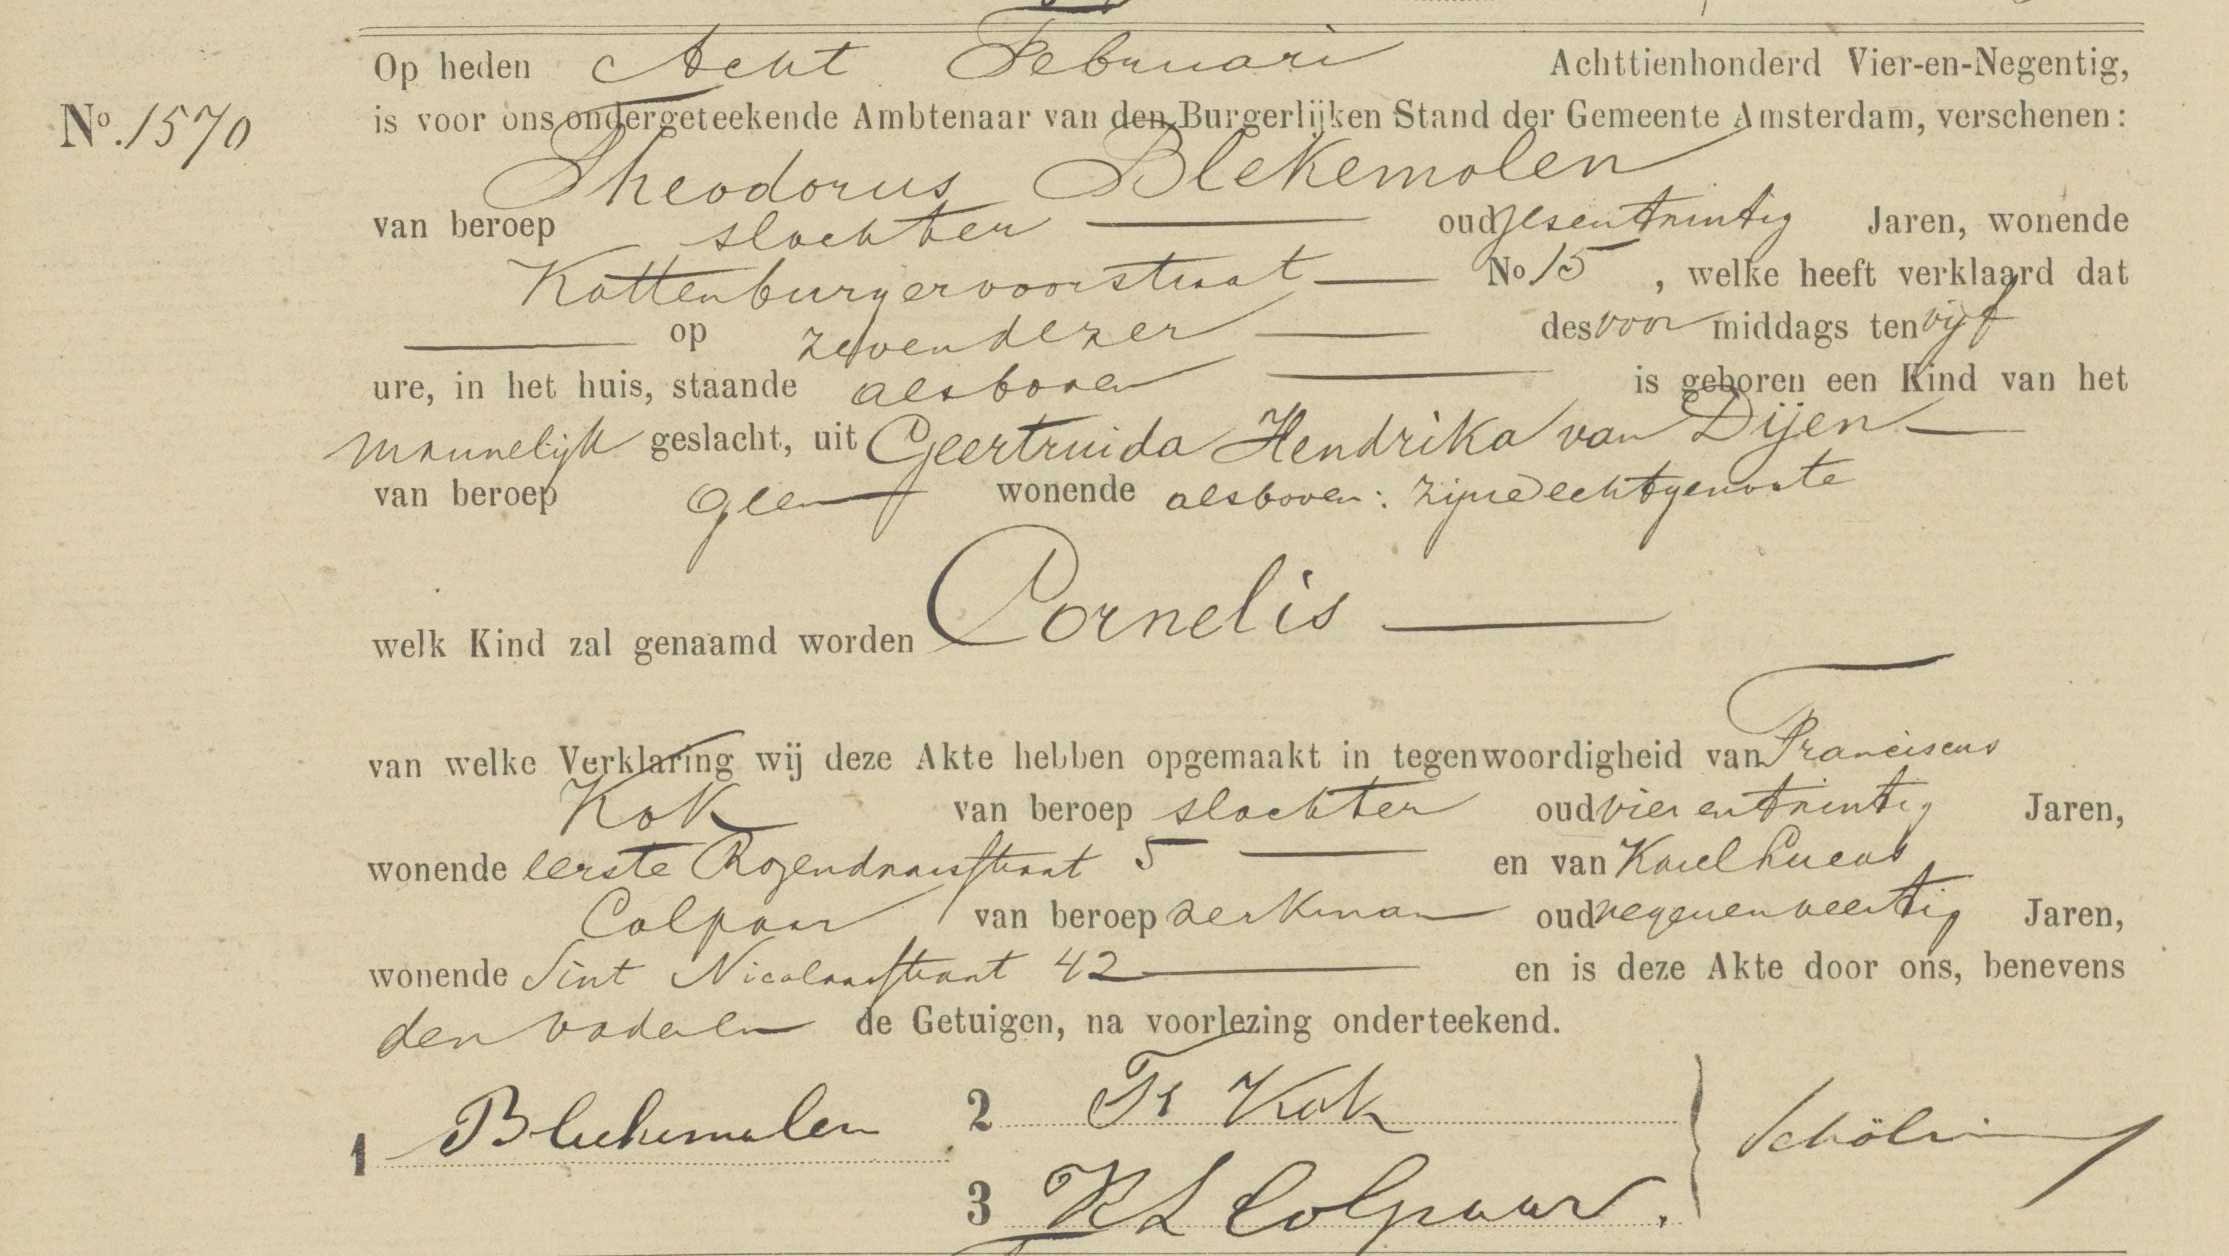 Op heden Acht Februari Achttienhonderd Vier-en-Negentig,
No. 1570 is voor ons ondergeteekende Ambtenaar van den Burgerlijken Stand der Gemeente Amsterdam, verschenen:
Theodorus Blekemolen
van beroep slachter oud zesentrintig Jaren, wonende
Kattenburgervoorstraat No 15, welke heeft verklaard dat
op zevendezer des voor middags ten vijf
ure, in het huis, staande alsboven is geboren een Kind van het
mannelijk geslacht, uit Geertruida Hendrika van Dijen
van beroep geen wonende alsboven: zijne echtgenoote
welk Kind zal genaamd worden Cornelis
van welke Verklaring wij deze Akte hebben opgemaakt in tegenwoordigheid van Franciscus
Kok van beroep slachter oud vierentrintig Jaren,
wonende eerste Rozendwarsstraat 5 en van Karel Lucas
Colpaar van beroep werkman oud negenenveertig Jaren,
wonende Sint Nicolaasstraat 42 en is deze Akte door ons, benevens
den vader en de Getuigen, na voorlezing onderteekend.
1 Blekemolen 2 Fr Kok
3 K L Colpaar.